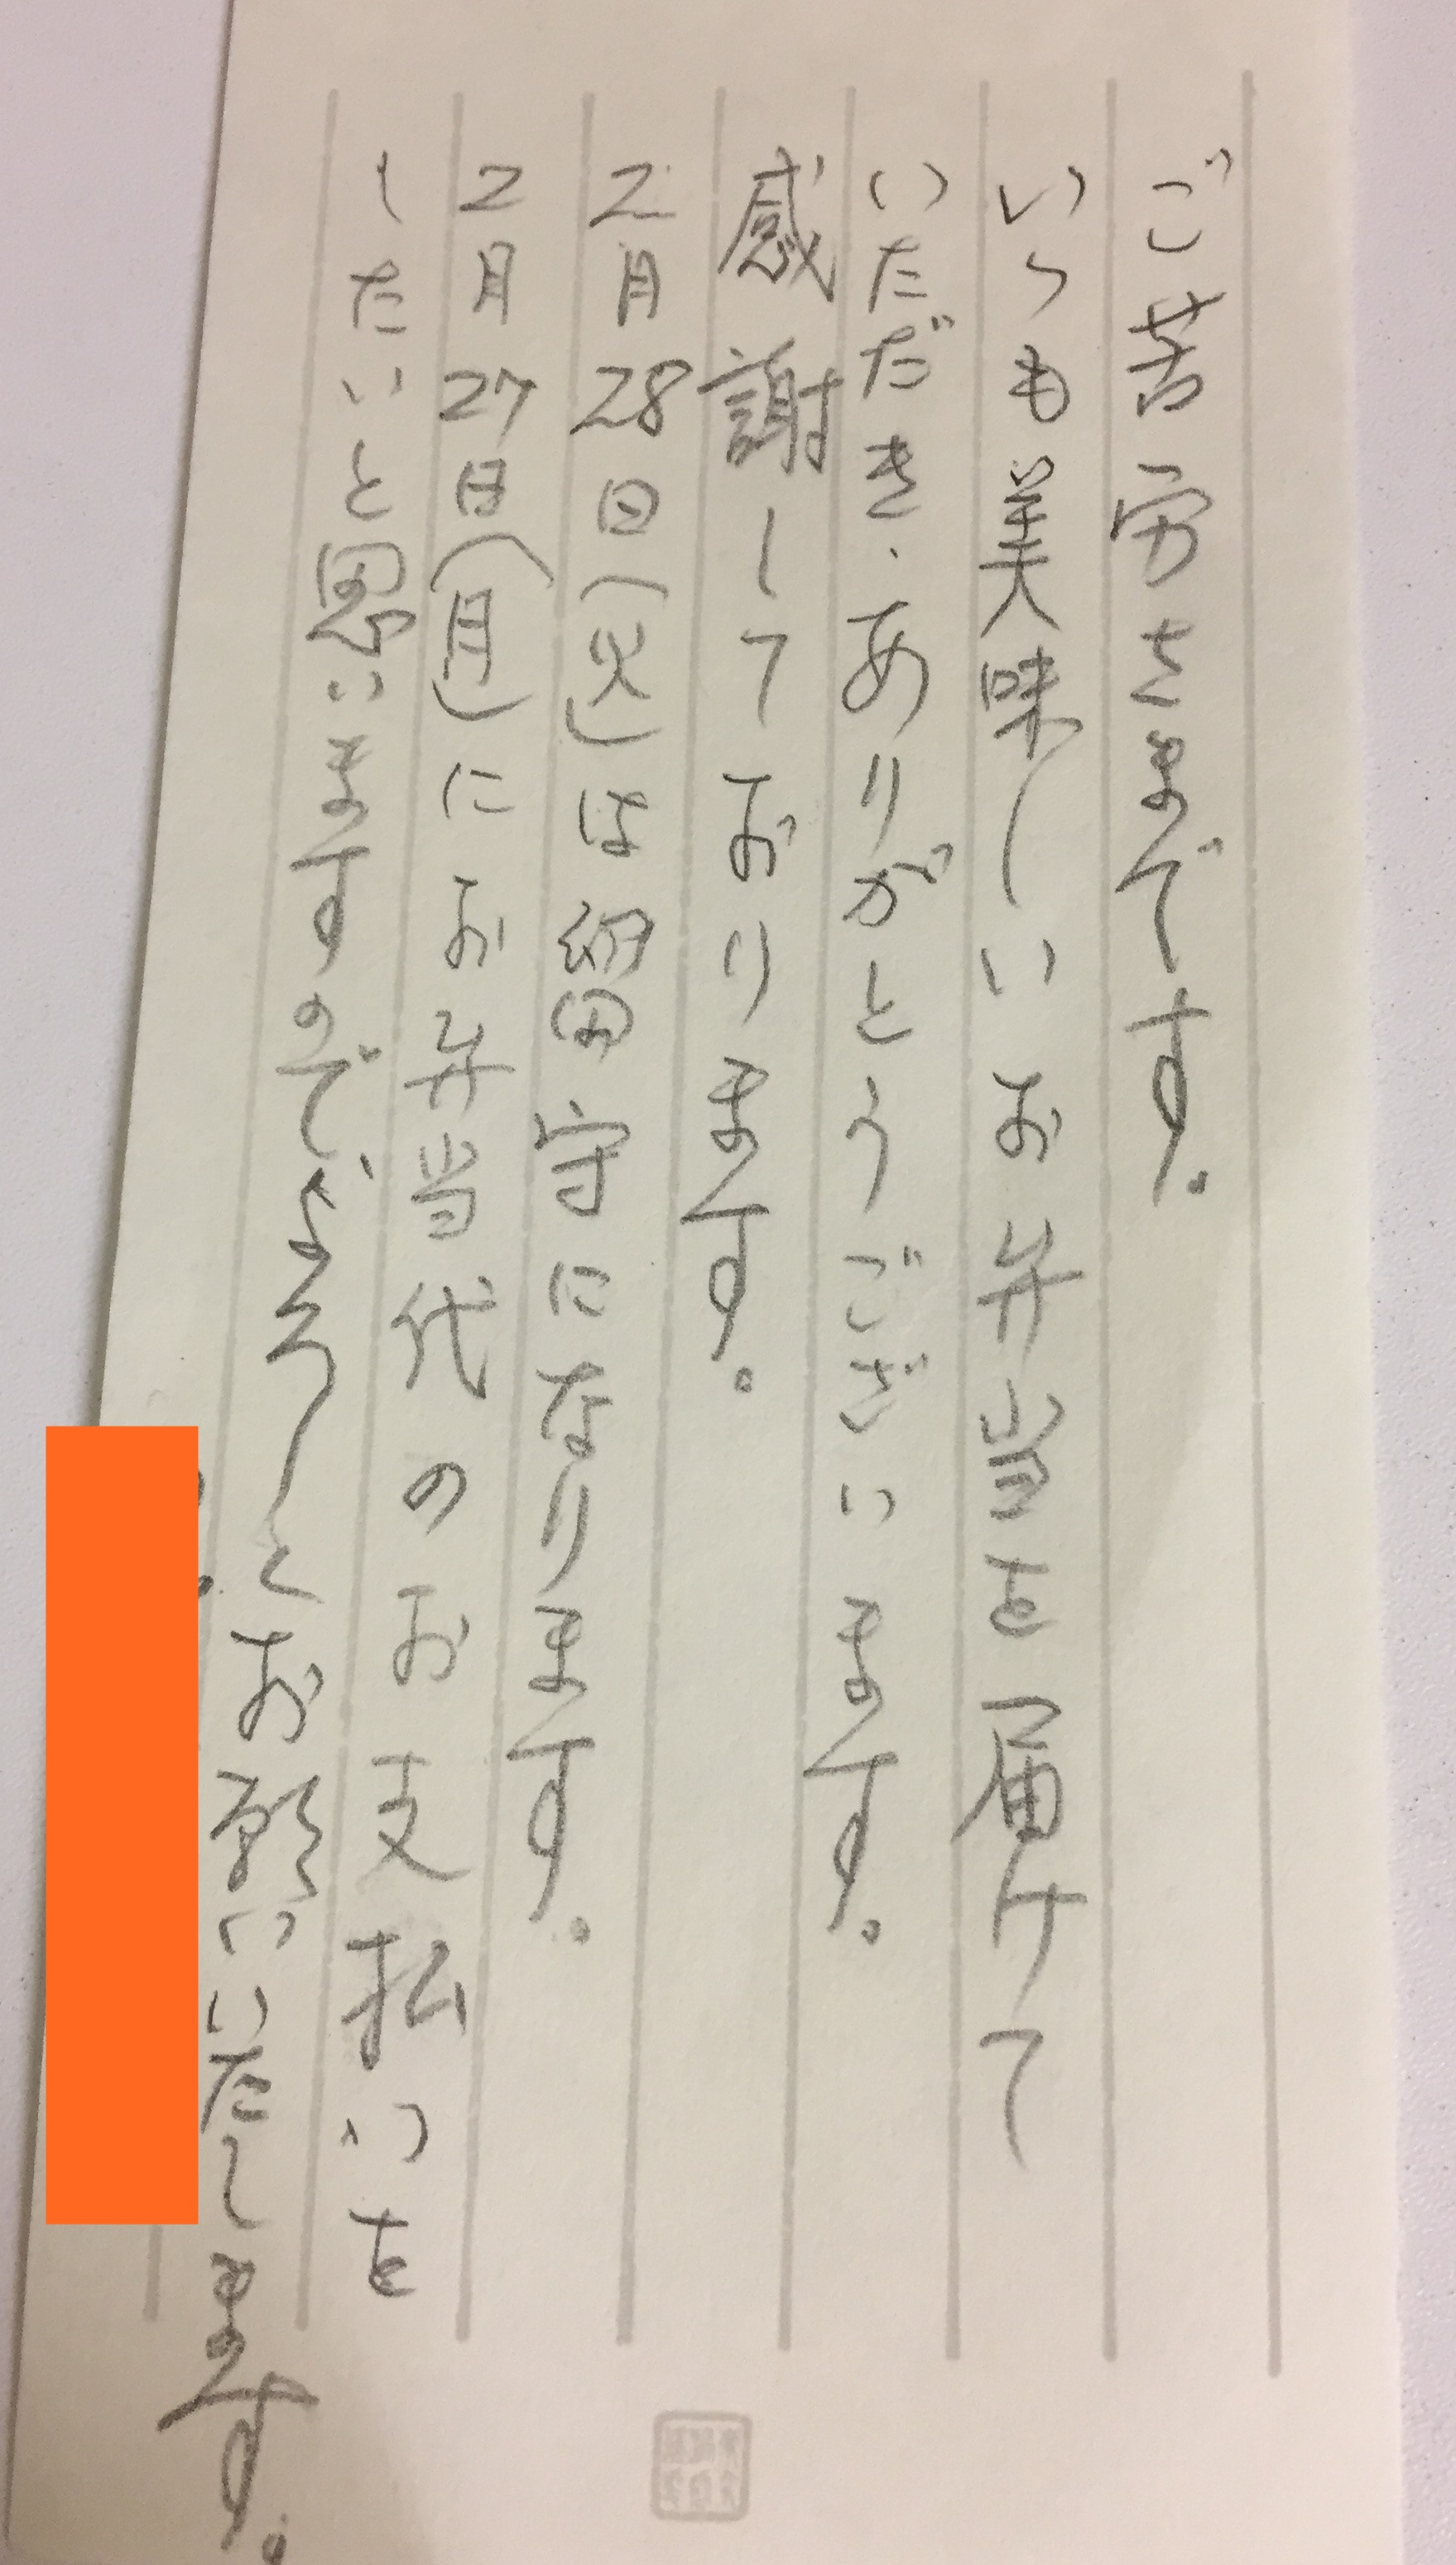 ご苦労さまです。
いつも美味しいお弁当を届けて
いただき、ありがとうございます。
感謝しております。
2月28日(火)は留守になります。
2月27日(月)にお弁当代のお支払いを
したいと思いますので
よろしくお願いいたします。